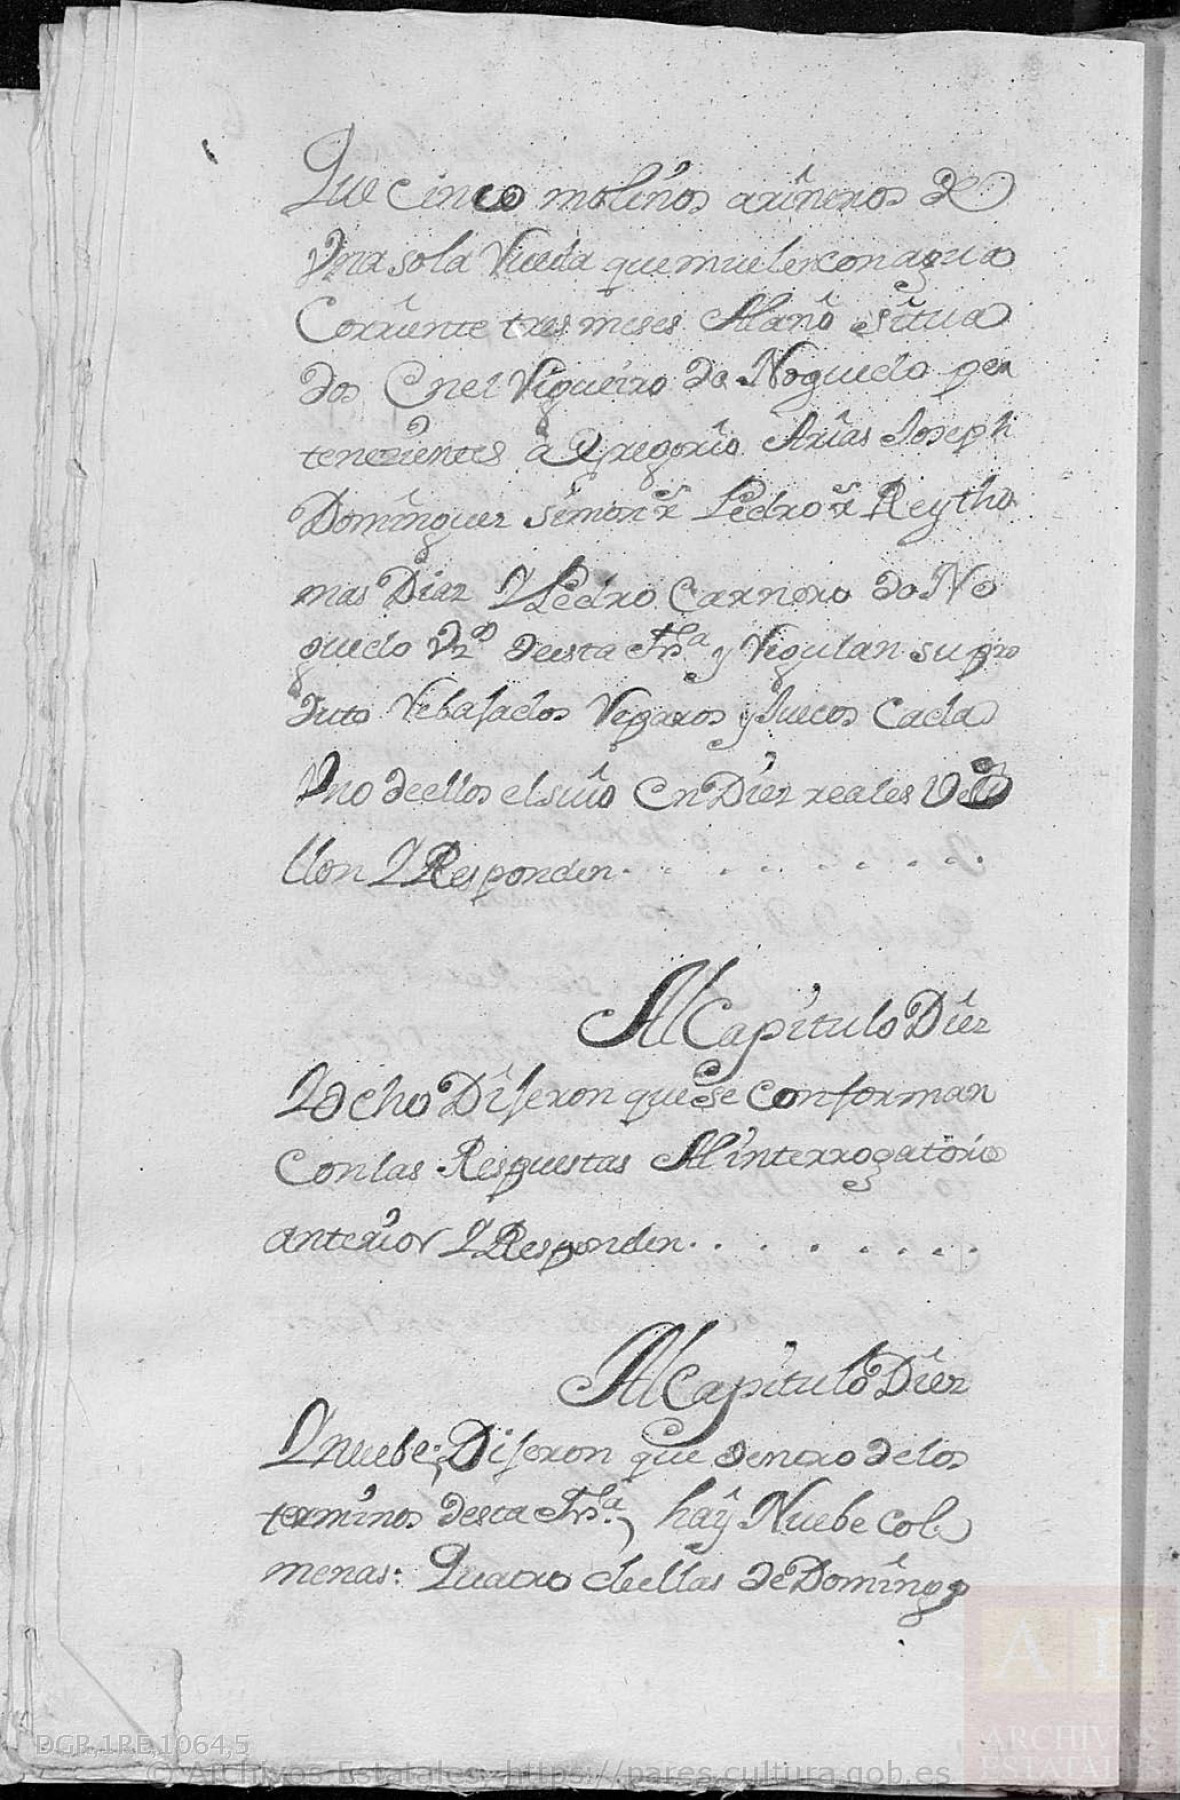 Que cinco molinos arineros de
Una sola Rueda que muelen con agua
Corriente tres meses Al año situa
dos Enel Rigueiro do Noguedo per
tenezientes a Gregorio Arias Joseph
Dominguez Simon Pedro Rey tho
mas Diaz Y Pedro Carnero do No
guedo Vz.os deesta Frˢª y Regulan supro
duto Rebajados Reparos y huecos Cada
Uno deellos elsuio En Diez reales Ve
llon Y Responden. . . . . . . . . .
Al Capitulo Diez
Y ocho Dijeron quese conforman
Conlas Respuestas Al interrogatorio
anterior Y Responden. . . . . . . . .
Al Capitulo Diez
Y nuebe; Dijeron que dentro delos
terminos desta Frˢª, haÿ Nuebe col
menas: Quatro deellas de Domingo
DGR,1RE,1064,5
© Archivos Estatales, https://pares.cultura.gob.es
AE
ARCHIVOS
ESTATALES